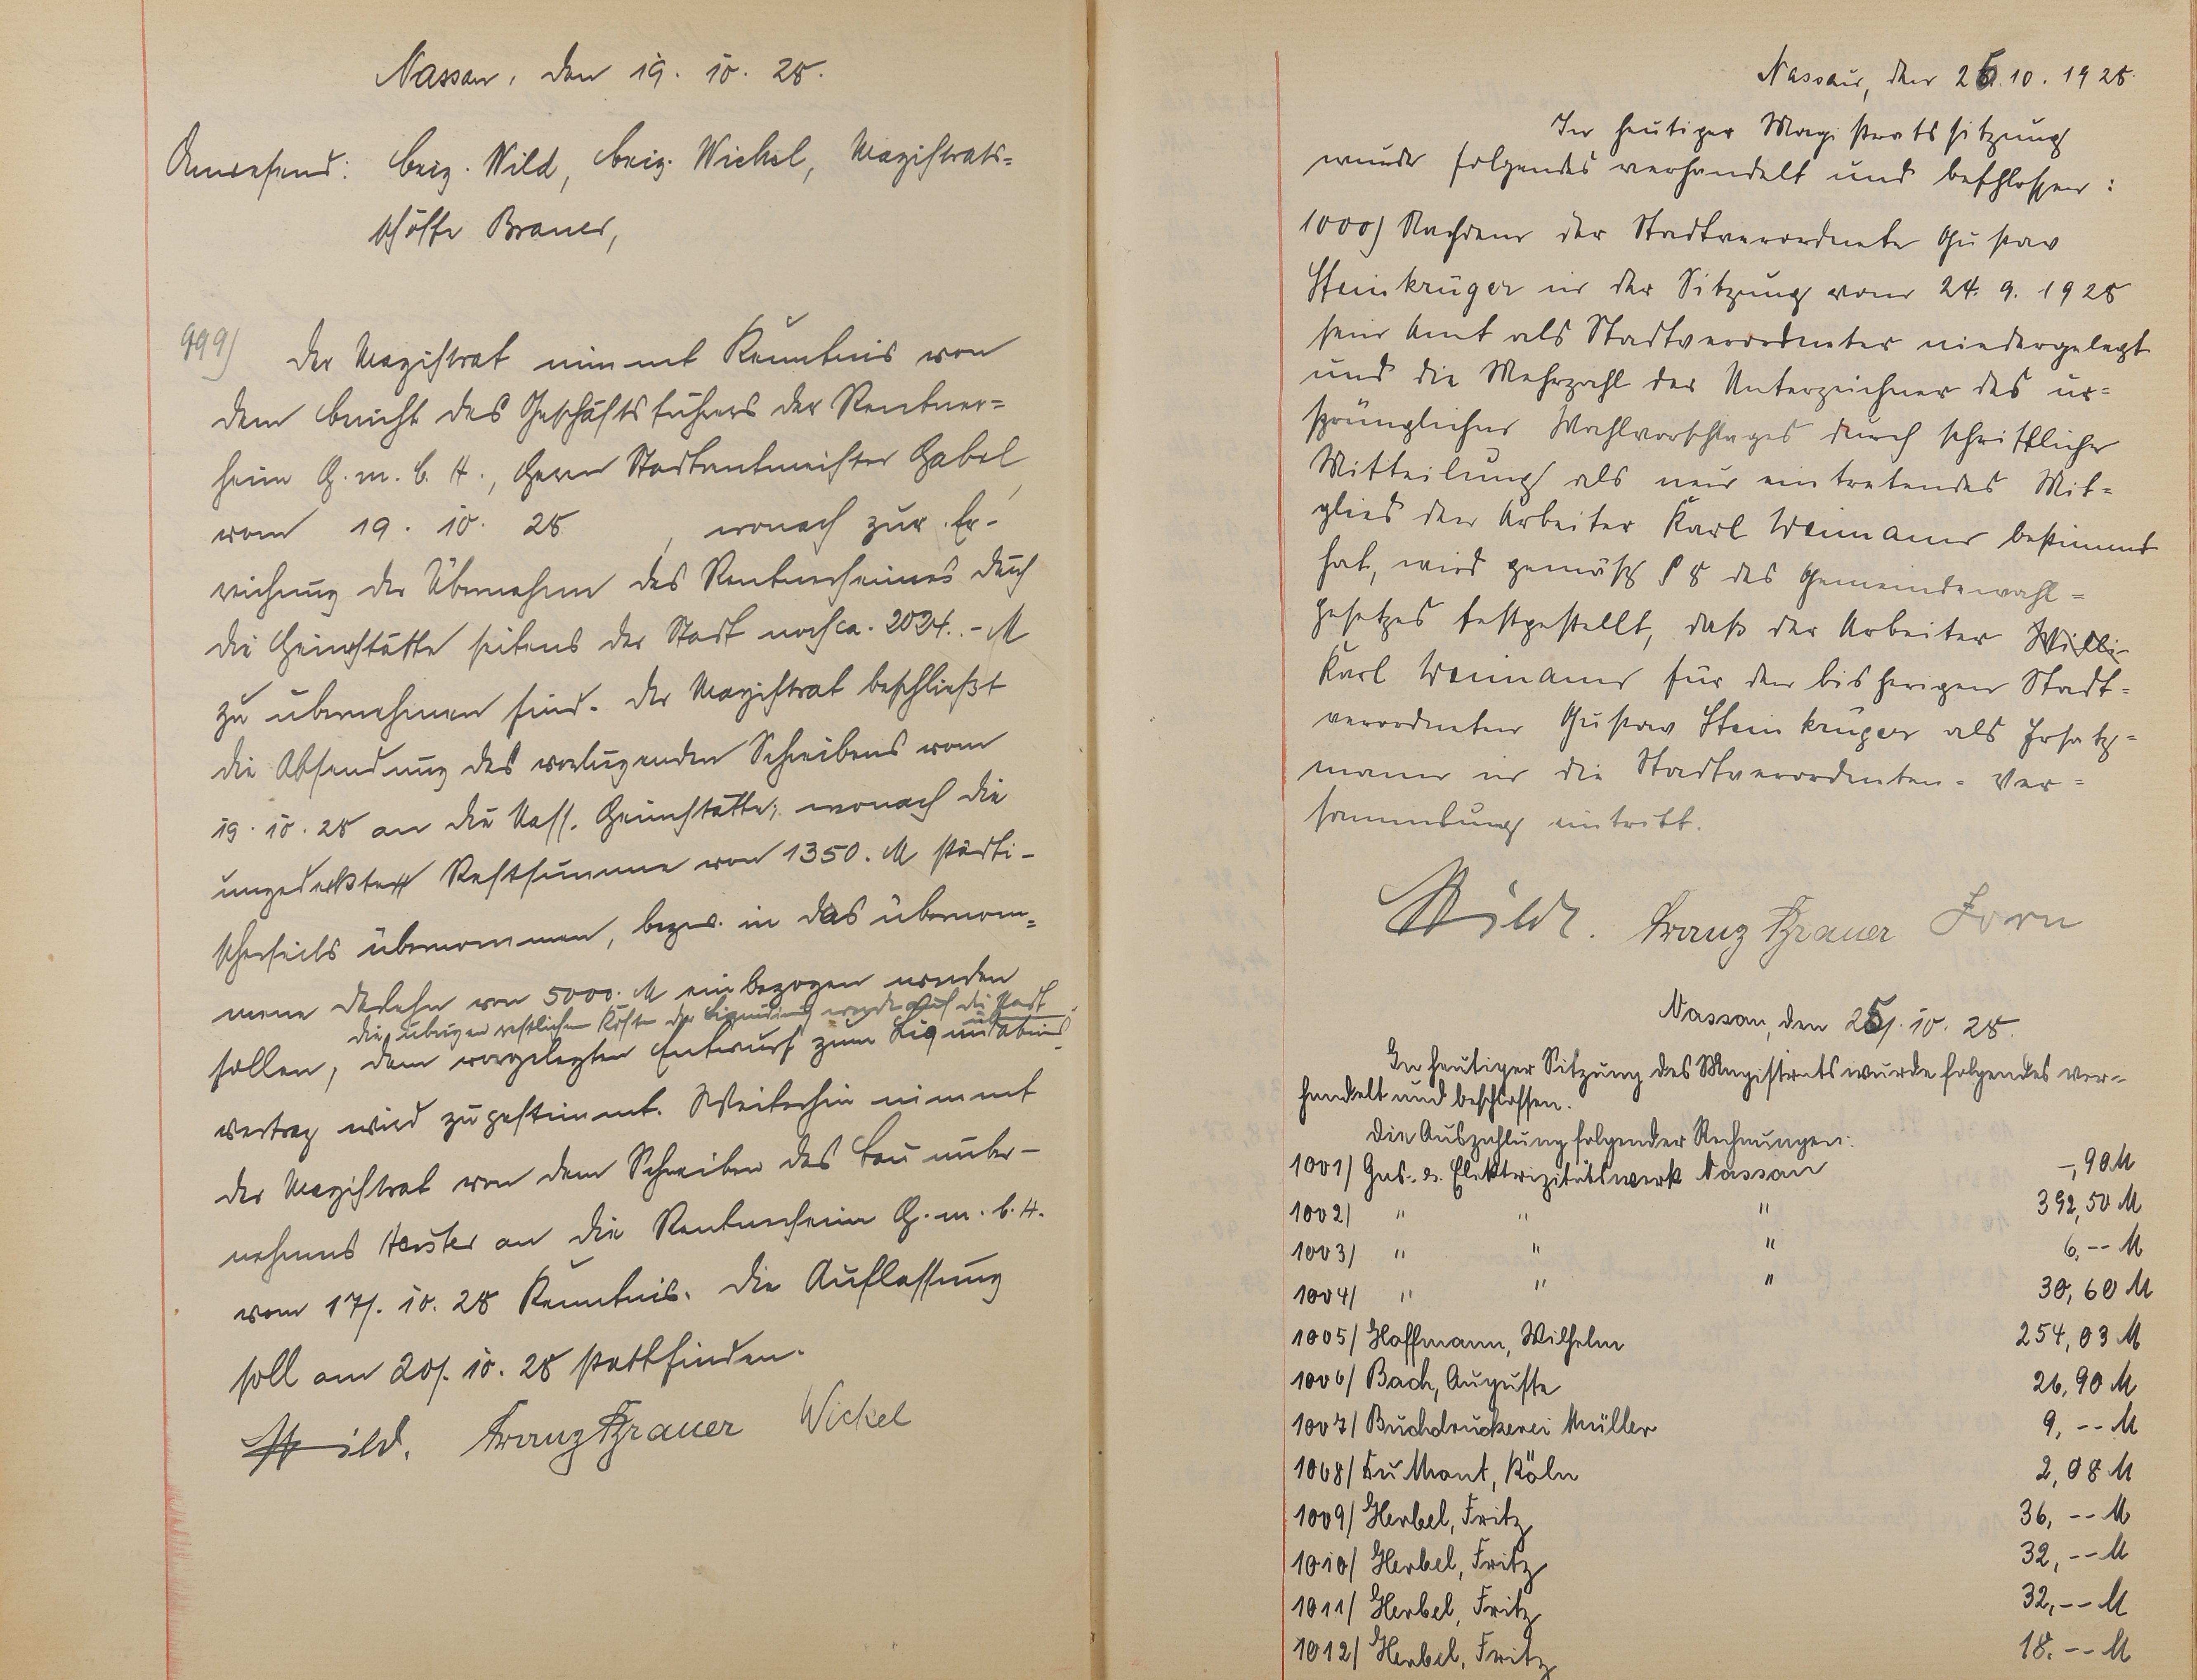 Nassau, den 19. 10. 28.
Anwesend: beig. Wild, beig. Wickel, Magistrats-
schöffe Brauer,
999) Der Magistrat nimmt Kenntnis von
dem Bericht des Geschäftsführers der Rentner-
heim G.m.b.H., Herrn Stadtrentmeister Gabel,
vom 19. 10. 28, wonach zur Er-
reichung der Übernahme des Rentnerheimes durch
die Heimstätte seitens der Stadt noch ca. 2024.- M
zu übernehmen sind. Der Magistrat beschließt
die Absendung des vorliegenden Schreibens vom
19. 10. 28 an die Nass. Heimstätte, wonach die
ungedeckte Restsumme von 1350. M städti-
scherseits übernommen, bezw. in das übernom-
mene Darlehn von 5000. M einbezogen werden
die übrigen restlichen Kosten der Liquidierung werden auf die Stadt
sollen, dem vorgelegten Entwurf zum Liquidations-
vertrag wird zugestimmt. Weiterhin nimmt
der Magistrat von dem Schreiben des Bauunter-
nehmers Heuster an die Rentnerheim G.m.b.H.
vom 17/. 10. 28 Kenntnis. Die Auflassung
soll am 20/. 10. 28 stattfinden.
Wild. Franz Brauer Wickel
Nassau, den 25.10.1928
In heutiger Magistratssitzung
wurde folgendes verhandelt und beschlossen:
1000) Nachdem der Stadtverordnete Gustav
Steinkrüger in der Sitzung vom 24. 9. 1928
sein Amt als Stadtverordneter niedergelegt
und die Mehrzahl der Unterzeichner des ur-
sprünglichen Wahlvorschlages durch schriftliche
Mitteilung als neu eintretendes Mit-
glied den Arbeiter Karl Weimann bestimmt
hat, wird gemäß § 8 des Gemeindewahl-
gesetzes festgestellt, daß der Arbeiter Willi
Karl Weimann für den bisherigen Stadt-
verordneten Gustav Steinkrüger als Ersatz-
mann in die Stadtverordneten-Ver-
sammlung eintritt.
Wild. Franz Brauer Zorn
Nassau, den 25/. 10. 28.
In heutiger Sitzung des Magistrats wurde folgendes ver-
handelt und beschlossen.
Die Auszahlung folgender Rechnungen:
1001/ Gas- u. Elektrizitätswerk Nassau -,90 M
1002/ " " " 392,50 M
1003/ " " " 6,-- M
1004/ " " " 30,60 M
1005/ Hoffmann, Wilhelm 254,03 M
1006/ Bach, Auguste 26,90 M
1007/ Buchdruckerei Müller 9,-- M
1008/ Du Mont, Köln 2,08 M
1009/ Herbel, Fritz 36,-- M
1010/ Herbel, Fritz 32,-- M
1011/ Herbel, Fritz 32,-- M
1012/ Herbel, Fritz 18.-- M